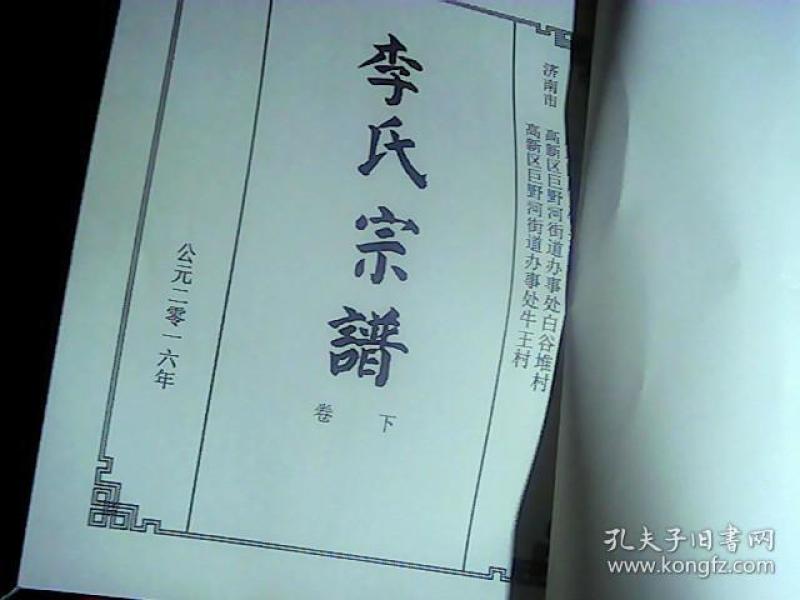 济南市
高新区巨野河街道办事处白谷堆村
高新区巨野河街道办事处牛王村
李氏宗譜
下
卷
公元二零一六年
孔夫子旧书网
www.kongfz.com